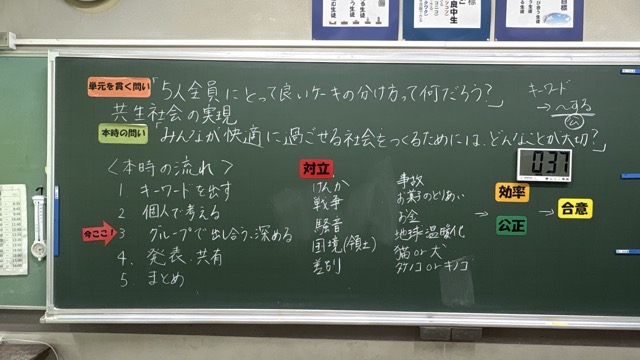 標
良中生
目標
単元を貫く問い「5人全員にとって良いケーキの分け方って何だろう?」
共生社会の実現
本時の問い「みんなが快適に過ごせる社会をつくるためには、どんなことが大切?」
キーワード
→〜する
公
0:37
<本時の流れ>
1 キーワードを出す
2 個人で考える
今ここ! 3 グループで出し合う、深める
4. 発表、共有
5 まとめ
対立
けんか
戦争
騒音
国境(領土)
差別
事故
お菓子のとりあい
お金
地球温暖化
猫or犬
タケノコorキノコ
→ 効率
公正
→ 合意